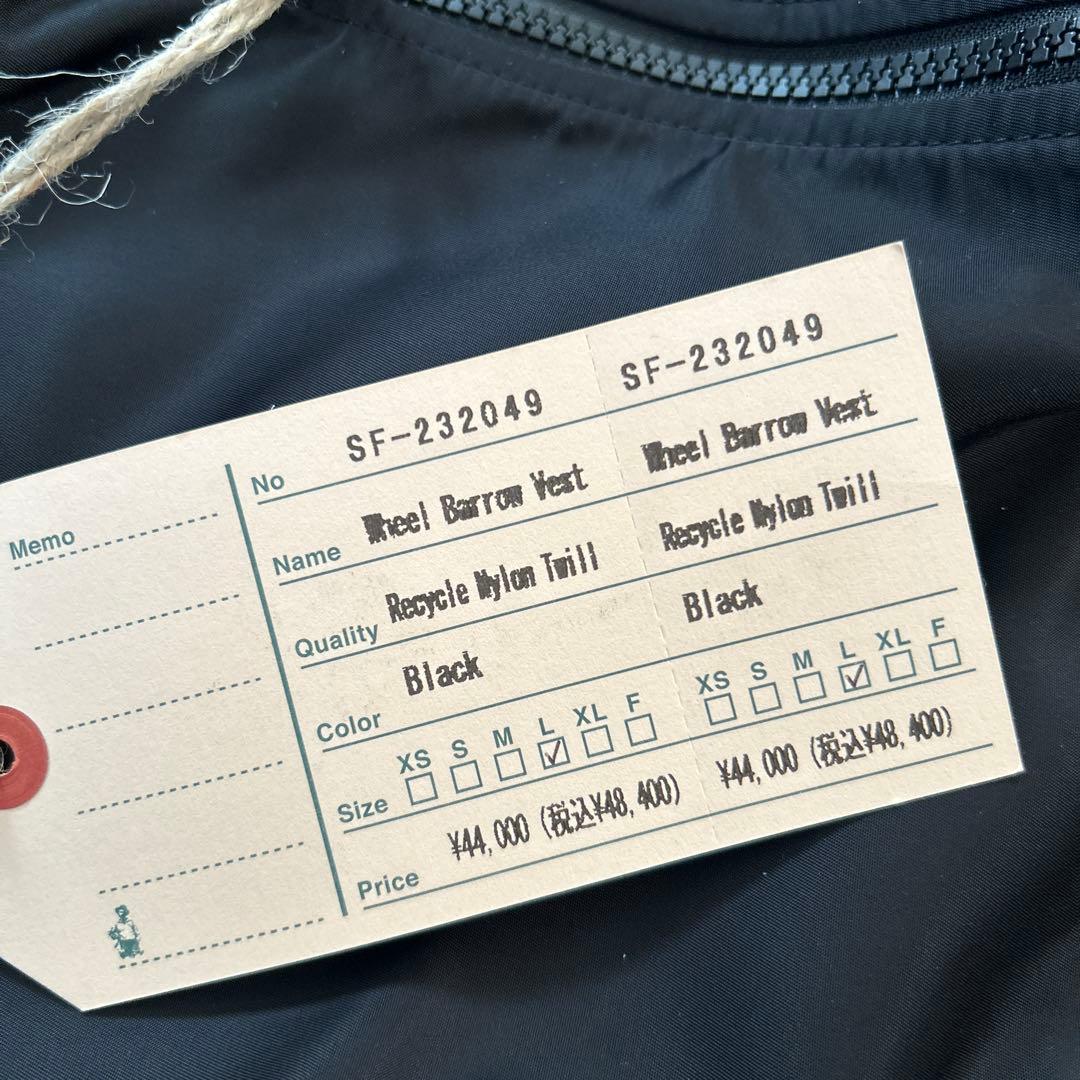 Memo
No SF-232049 SF-232049
Name Wheel Barrow Vest Wheel Barrow Vest
Quality Recycle Nylon Twill Recycle Nylon Twill
Color Black Black
XS S M L XL F XS S M L XL F
Size
Price ¥44,000 (税込¥48,400) ¥44,000 (税込¥48,400)